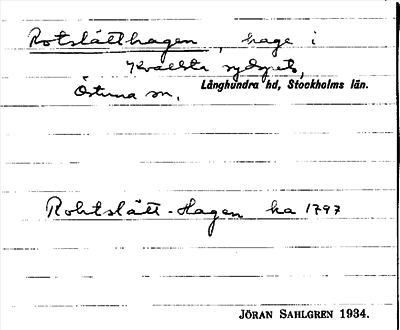 Rotslätthagen, hage i
Kvallsta
Östuna sn, Långhundra hd, Stockholms län.
Rohtslätt-Hagen ha 1797
JÖRAN SAHLGREN 1934.